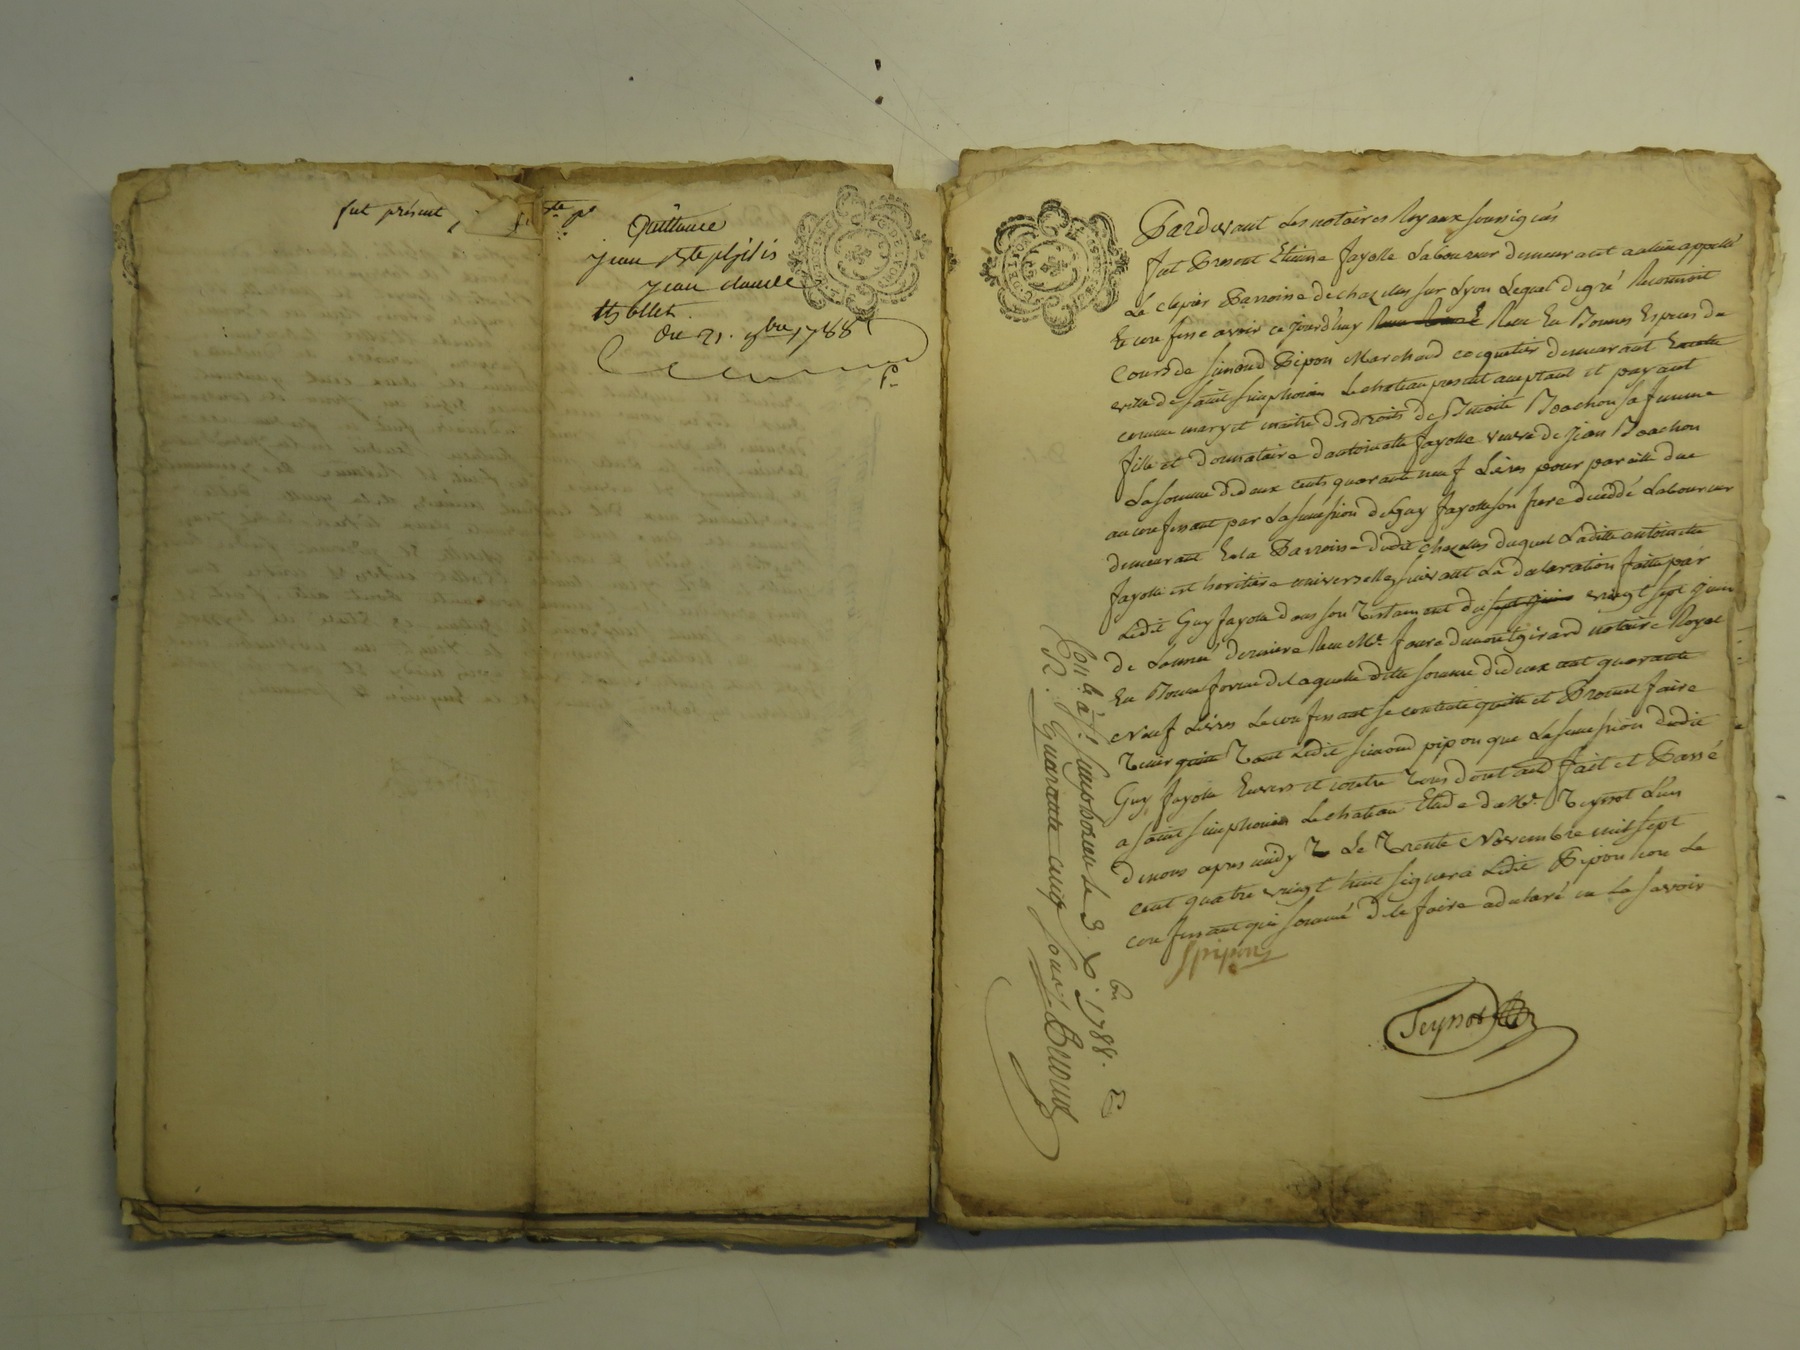 fut présent,
Quittance
jean
jean claude
thollet.
du 21. 9bre 1788
Pardevant Les notaires Royaux soussignés
fut Present Etienne fayolle Laboureur demeurant au lieu appellé
Le clepier Parroisse de chazelles sur Lyon Lequel degré Reconnoit
Et confesse avoir ce jourd'huy Receu En Bonnes Especes du
Cours de simond Pipon Marchand cocquetier demeurant
ville de saint simphorien Le chateau present aceptant et payant
comme mary et maitre des droits de Benoite Boachon sa femme
fille et donnataire d'antoinette fayolle veuve de jean Boachon
La somme de deux cents quarante neuf Livres pour pareille due
au confessant par La succession de Guy fayolle son frere decedé Laboureur
demeurant En La Parroisse dudit chazelles duquel Laditte antoinette
fayolle est heritiere universelle suivant La declaration faitte par
Ledit Guy fayolle dans son Testament du sept juin vingt sept juin
de L'année derniere Receu Me. faure de montgirard notaire Royal
En Bonne forme de laquelle ditte somme de deux cent quarante
Neuf Livres Le confessant se contente quitte et Promet faire
Tenir quitte Tant Ledit simond pipon que La succession dudit
Guy fayolle Envers et contre Tous dont acte fait et Passé
a saint simphorien Le chateau Etude de Me. Teyssot L'un
de nous apres midy Le Trente Novembre mil sept
cent quatre vingt huit signera Ledit Pipon non Le
confessant qui sommé de le faire a declaré ne La savoir
S pipon
Teyssot
Conlé à St. Simphorien le 3 Xbre 1788.
R. Quarante cinq sous